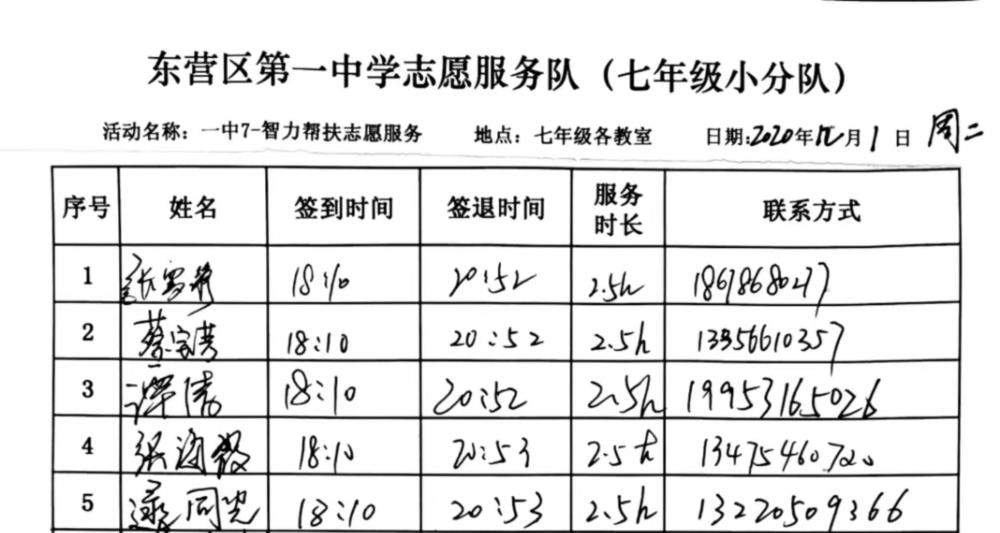 东营区第一中学志愿服务队（七年级小分队）
活动名称：一中7-智力帮扶志愿服务 地点：七年级各教室 日期:2020年12月1日 周二
序号 姓名 签到时间 签退时间 服务时长 联系方式
1 张雪 18:10 20:52 2.5h
2 蔡 18:10 20:52 2.5h 13356610357
3 谭倩 18:10 20:52 2.5h 19953165026
4 张 18:10 20:53 2.5h 13475460720
5 同光 18:10 20:53 2.5h 13220509366